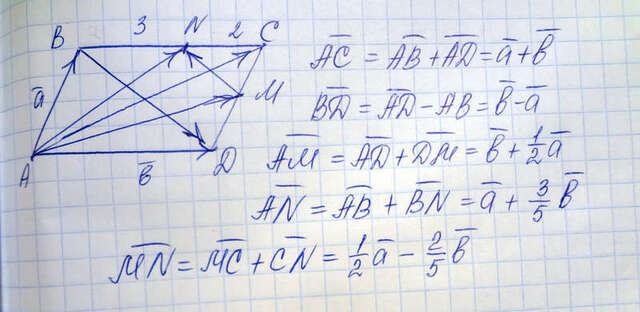 B 3 N 2 C
a̅
M
A b̅ D
A̅C̅ = A̅B̅ + A̅D̅ = a̅ + b̅
B̅D̅ = A̅D̅ - AB = b̅ - a̅
A̅M̅ = A̅D̅ + D̅M̅ = b̅ + 1/2 a̅
A̅N̅ = A̅B̅ + B̅N̅ = a̅ + 3/5 b̅
M̅N̅ = M̅C̅ + C̅N̅ = 1/2 a̅ - 2/5 b̅